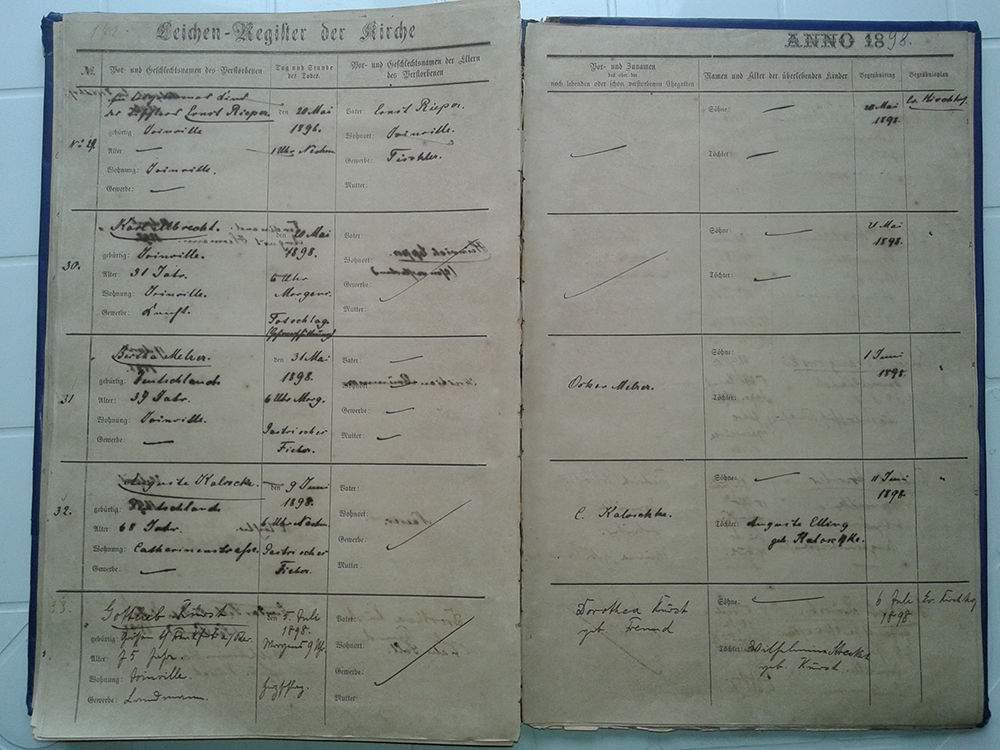 142.
Leichen-Register der Kirche
№.
Vor- und Geschlechtsnamen des Verstorbenen
Tag und Stunde des Todes.
Vor- und Geschlechtsnamen der Eltern des Verstorbenen
No 29.
der Ernst Rieper
gebürtig: Joinville
Alter: —
Wohnung: Joinville.
Gewerbe: —
den 20 Mai
1898.
1 Uhr Nachm
Vater: Ernst Rieper.
Wohnort: Joinville.
Gewerbe: Tischler.
Mutter:
30.
Karl Albrecht.
gebürtig: Joinville.
Alter: 31 Jahr.
Wohnung: Joinville.
Gewerbe:
den 20 Mai
1898.
6 Uhr
Morgens.
Totschlag.
Vater:
Wohnort:
Gewerbe:
Mutter:
31
Bertha Melzer.
gebürtig: Deutschland
Alter: 39 Jahr.
Wohnung: Joinville.
Gewerbe: —
den 31 Mai
1898.
6 Uhr Morg.
Gastrischer
Fieber.
Vater: —
Wohnort:
Gewerbe: —
Mutter: —
32.
Auguste Kaloschke.
gebürtig: Deutschland
Alter: 68 Jahr.
Wohnung: Catharinenstrasse.
Gewerbe: —
den 9 Juni
1898.
6 Uhr Nachm.
Gastrischer
Fieber.
Vater:
Wohnort:
Gewerbe:
Mutter:
33.
Gottlieb Kürst
gebürtig: Frankfurt a/Oder
Alter: 75 Jahr.
Wohnung: Joinville.
Gewerbe: Landmann.
den 5. Juli
1898.
Morgens 9 Uhr.
Vater:
Wohnort:
Gewerbe:
Mutter:
ANNO 1898.
Vor- und Zunamen
des oder der
noch lebenden oder schon verstorbenen Ehegatten
Namen und Alter der überlebenden Kinder
Begräbnißtag
Begräbnißplatz
Söhne: —
Töchter: —
20 Mai
1898.
Ev. Kirchhof
Söhne: —
Töchter: —
21 Mai
1898.
"
Oskar Melzer.
Söhne:
Töchter:
1 Juni
1898.
"
C. Kaloschke.
Söhne: —
Töchter: Auguste Elling
geb. Kaloschke.
11 Juni
1898.
"
Dorothea Kürst
geb. Freund
Söhne: —
Töchter: Wilhelmine
geb. Kürst.
6 Juli
1898
Ev. Kirchhof